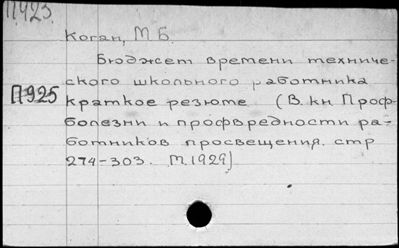 П423.
Коган, М.Б.
Бюджет времени техниче-
ского школьного работника
П925
краткое резюме (В. кн Проф-
болезни и профвредности ра-
ботников просвещения. стр
274-303. М. 1929)